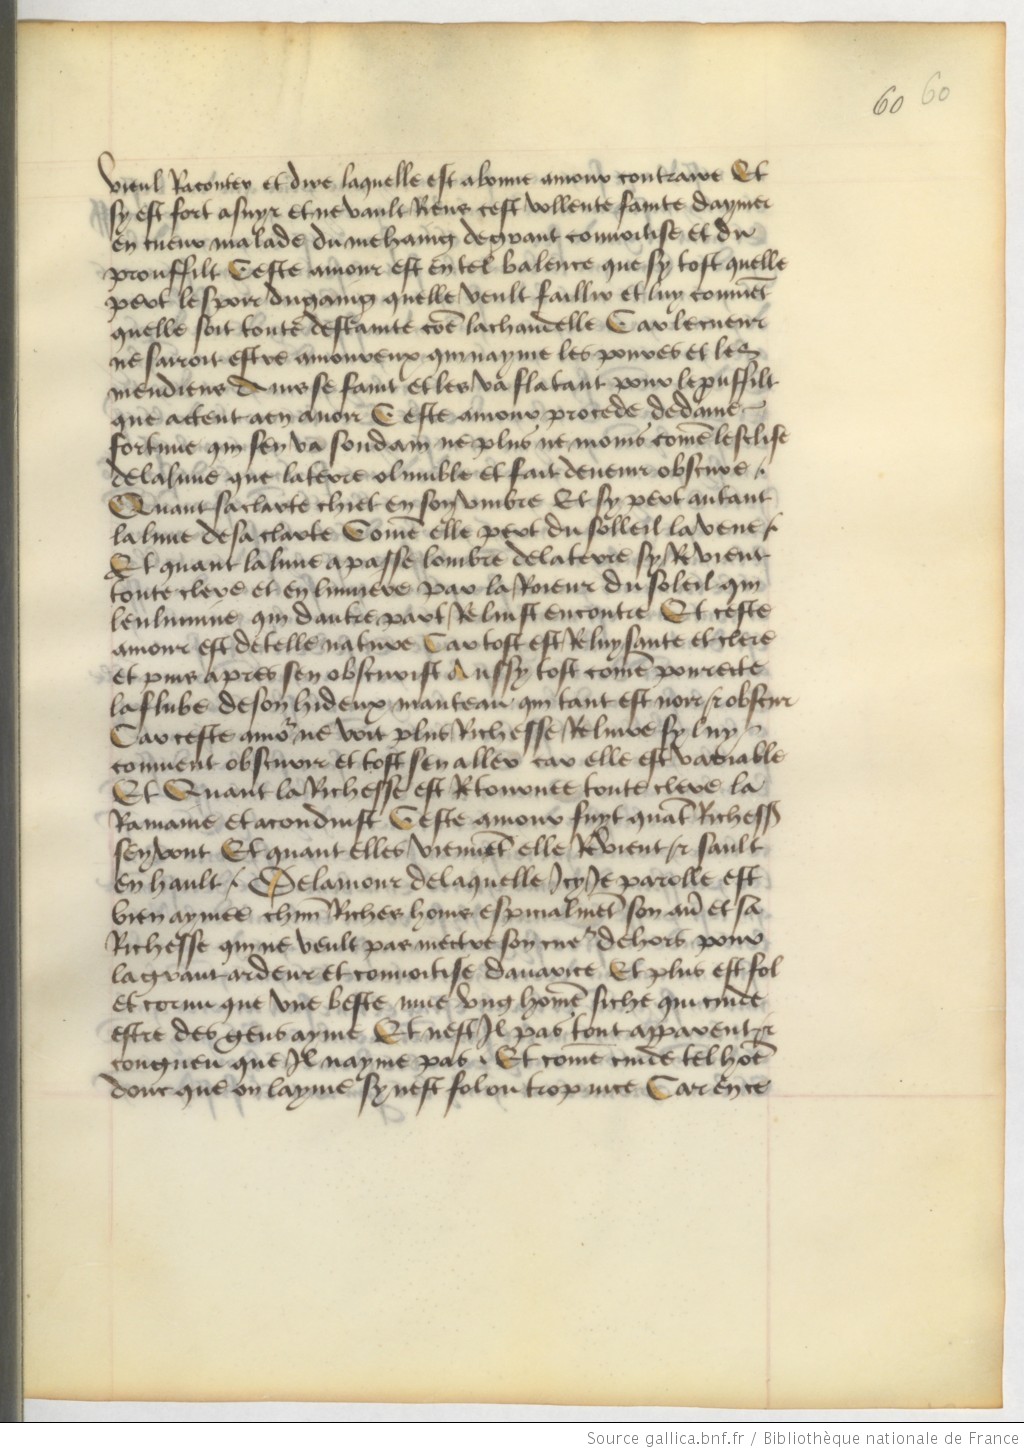 60 60
vieul Raconter et dire laquelle est abonne amour contraire Et
sy est fort asuyr et ne vault Riens cest vollente fainte daymer
en cueur malade du mehaing de grant convoitise et du
prouffilt Ceste amour est en tel balence que sy tost quelle
pert lespoir du gaing quelle veult faillir et luy conviēt
quelle soit toute destainte cōe lachandelle Car le cueur
ne sairoit estre amoureux qui nayme les povres et les
mendiens Ains se faint et les va flatant pour le puffilt
que actent a en avoir Ceste amour procede de dame
fortune qui sen va soudain ne plus ne moins comē lesclise
de la lune que la terre obnuble et fait devenir obscure
Quant sa clarte chiet en son umbre Et sy pert autant
la lune de sa clarte Comē elle pert du solleil la veue
Et quant la lune a passe lombre de la terre sy Revient
toute clere et enluminee par la Roieur du soleil qui
lenlumine qui dautre part Reluist encontre Et ceste
amour est de telle nature Car tost est Reluysante et clere
et puis apres sen obscurist Aussy tost comē povrecte
laflube de son hideux manteau qui tant est noir et obscur
Car ceste amor ne voit plus Richesse Reluire sy luy
convient obscurir et tost sen aller car elle est variable
Et Quant la Richesse est Retournee toute clere la
Ramaine et aconduist Ceste amour fuyt quāt Richess
sen vont Et quant elles viennēt elle Revient et sault
en hault De lamour de laquelle Icy Je parolle est
bien aymee chūn Riches homs espicialmēt son avr et sa
Richesse qui ne veult pas mectre son cuer dehors pour
la grant ardeur et convoitise davarice Et plus est fol
et cornu que une beste mue ung homē riche qui cuide
estre des gens ayme Et nest Il pas tout apparent et
congneu que Il nayme pas Et comē cuide tel hōe
donc que on layme sy nest fol ou trop nice Car en ce
Source gallica.bnf.fr / Bibliothèque nationale de France